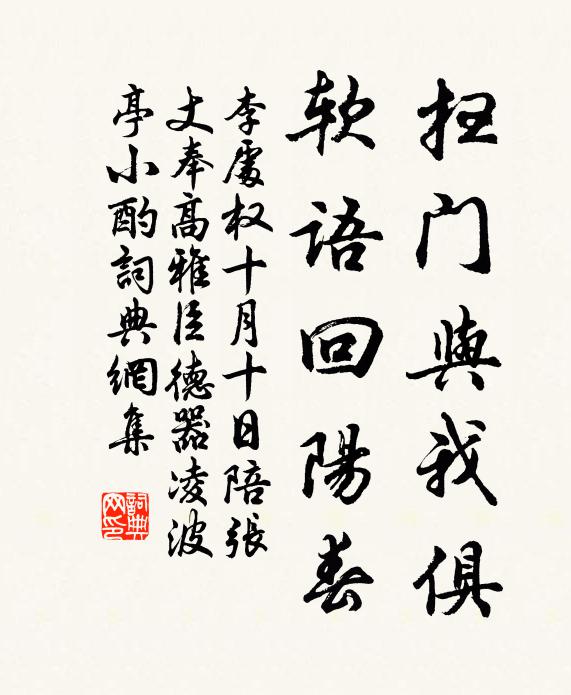 扫門與我俱
軟語回陽春
李處权十月十日陪張
丈奉高雅臣德器凌波
亭小酌詞典網集
詞典网印